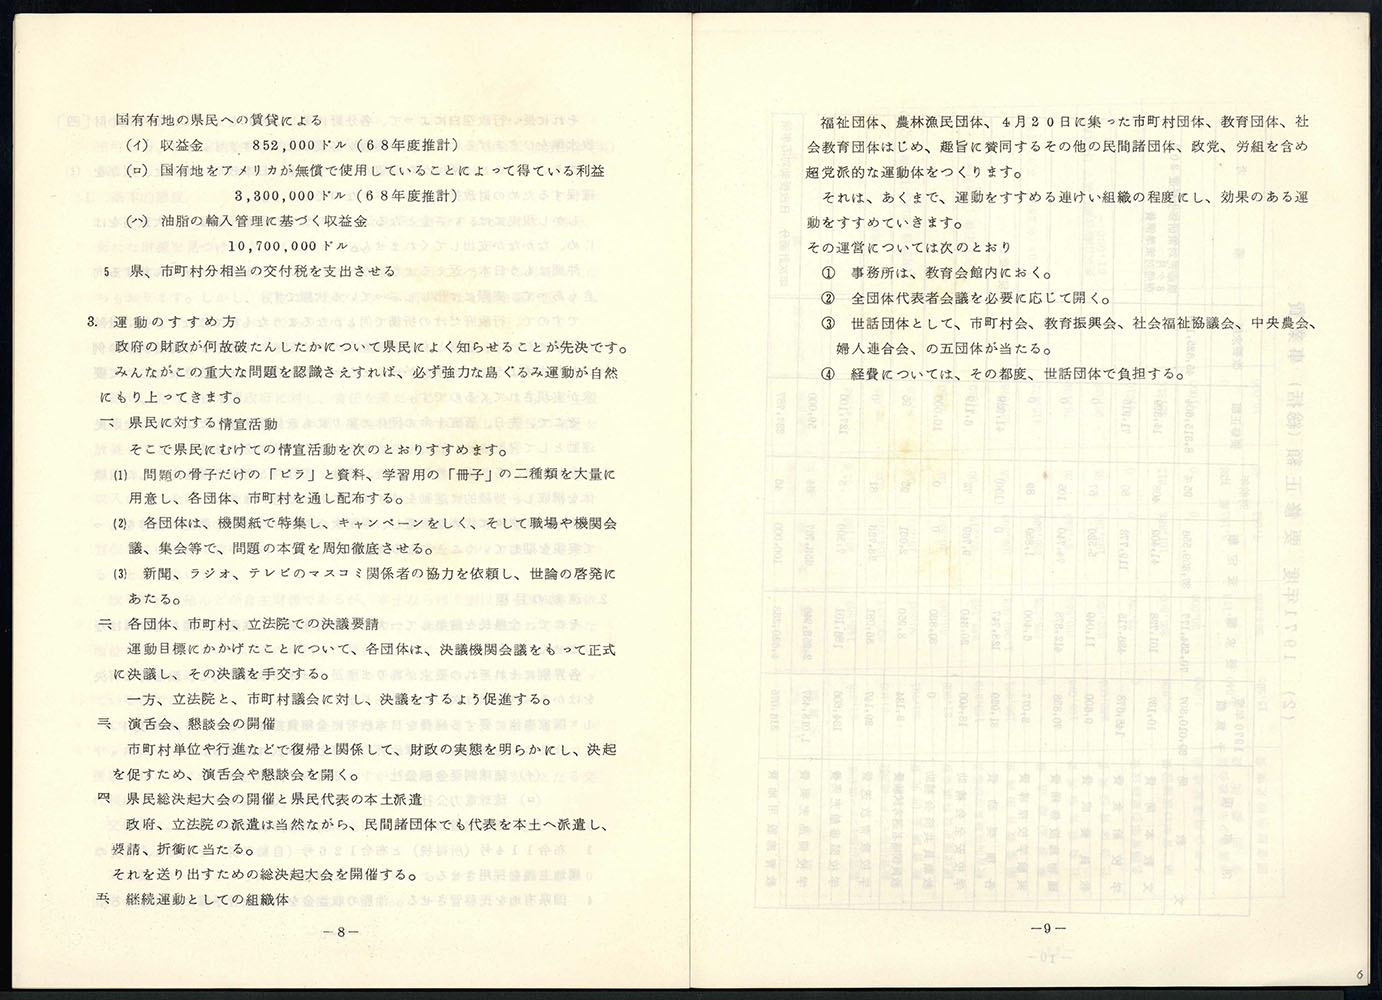 国有有地の県民への賃貸による
(イ) 収益金 852,000ドル（68年度推計）
(ロ) 国有地をアメリカが無償で使用していることによって得ている利益
3,300,000ドル（68年度推計）
(ハ) 油脂の輸入管理に基づく収益金
10,700,000ドル
5 県、市町村分相当の交付税を支出させる
3. 運動のすすめ方
政府の財政が何故破たんしたかについて県民によく知らせることが先決です。
みんながこの重大な問題を認識さえすれば、必ず強力な島ぐるみ運動が自然
にもり上ってきます。
一、 県民に対する情宣活動
そこで県民にむけての情宣活動を次のとおりすすめます。
(1) 問題の骨子だけの「ビラ」と資料、学習用の「冊子」の二種類を大量に
用意し、各団体、市町村を通し配布する。
(2) 各団体は、機関紙で特集し、キャンペーンをしく、そして職場や機関会
議、集会等で、問題の本質を周知徹底させる。
(3) 新聞、ラジオ、テレビのマスコミ関係者の協力を依頼し、世論の啓発に
あたる。
二、 各団体、市町村、立法院での決議要請
運動目標にかかげたことについて、各団体は、決議機関会議をもって正式
に決議し、その決議を手交する。
一方、立法院と、市町村議会に対し、決議をするよう促進する。
三、 演舌会、懇談会の開催
市町村単位や行進などで復帰と関係して、財政の実態を明らかにし、決起
を促すため、演舌会や懇談会を開く。
四、 県民総決起大会の開催と県民代表の本土派遣
政府、立法院の派遣は当然ながら、民間諸団体でも代表を本土へ派遣し、
要請、折衝に当たる。
それを送り出すための総決起大会を開催する。
五、 継続運動としての組織体
－8－
福祉団体、農林漁民団体、4月20日に集った市町村団体、教育団体、社
会教育団体はじめ、趣旨に賛同するその他の民間諸団体、政党、労組を含め
超党派的な運動体をつくります。
それは、あくまで、運動をすすめる連けい組織の程度にし、効果のある運
動をすすめていきます。
その運営については次のとおり
① 事務所は、教育会館内におく。
② 全団体代表者会議を必要に応じて開く。
③ 世話団体として、市町村会、教育振興会、社会福祉協議会、中央農会、
婦人連合会、の五団体が当たる。
④ 経費については、その都度、世話団体で負担する。
－9－
6